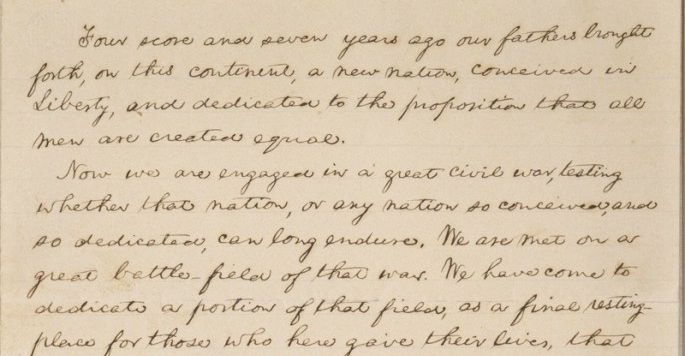 Four score and seven years ago our fathers brought
forth, on this continent, a new nation, conceived in
Liberty, and dedicated to the proposition that all
men are created equal.
Now we are engaged in a great civil war, testing
whether that nation, or any nation so conceived, and
so dedicated, can long endure. We are met on a
great battle-field of that war. We have come to
dedicate a portion of that field, as a final resting-
place for those who here gave their lives, that